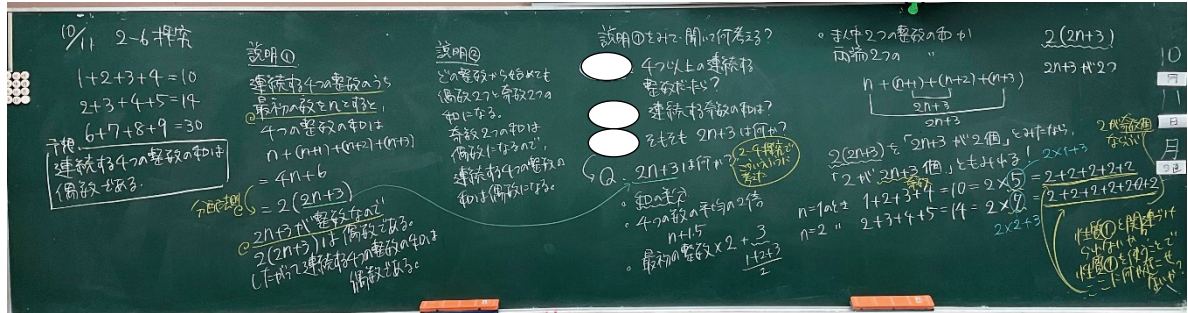 10/11 2-6 探究
1+2+3+4=10
2+3+4+5=14
6+7+8+9=30
予想
連続する4つの整数の和は
偶数である.
説明①
連続する4つの整数のうち
最初の数をnとすると,
4つの整数の和は
n+(n+1)+(n+2)+(n+3)
=4n+6
分配法則
=2(2n+3)
2n+3が整数なので
2(2n+3)は偶数である。
したがって連続する4つの整数の和は
偶数である。
説明②
どの整数から始めても
偶数2つと奇数2つの
和になる。
奇数2つの和は
偶数になるので,
連続する4つの整数の
和は偶数になる。
説明①をみて・聞いて何考える?
4つ以上の連続する
整数だったら?
連続する奇数の和は?
そもそも 2n+3は何か?
Q. 2n+3は何か?
2-4探究で
考えた
・4つの数の平均の2倍
n+1.5
・最初の整数×2+3
1+2+3
2
・まん中2つの整数の和が
両端2つの 〃
n+(n+1)+(n+2)+(n+3)
2n+3
2n+3
2(2n+3)
2n+3が2つ
2(2n+3)を「2n+3が2個」とみたなら,
「2が2n+3個」ともよめる!
奇数
2×1+3
n=1のとき 1+2+3+4=10=2×5=2+2+2+2+2
n=2 〃 2+3+4+5=14=2×7=2+2+2+2+2+2+2
2×2+3
2が奇数個
性質①と関連づけ
性質①を使うことで
10
月
11
日
月